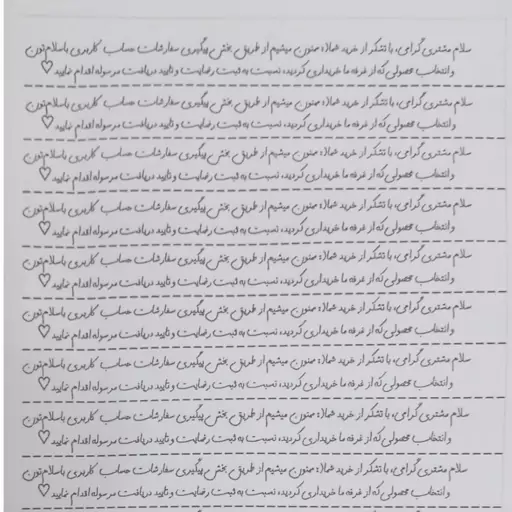 سلام مشتری گرامی، با تشکر از خرید شما؛ ممنون میشیم از طریق بخش پیگیری سفارشات حساب کاربری باسلامتون
و انتخاب محصولی که از غرفه ما خریداری کردید، نسبت به ثبت رضایت و تایید دریافت مرسوله اقدام نمایید ♡
سلام مشتری گرامی، با تشکر از خرید شما؛ ممنون میشیم از طریق بخش پیگیری سفارشات حساب کاربری باسلامتون
و انتخاب محصولی که از غرفه ما خریداری کردید، نسبت به ثبت رضایت و تایید دریافت مرسوله اقدام نمایید ♡
سلام مشتری گرامی، با تشکر از خرید شما؛ ممنون میشیم از طریق بخش پیگیری سفارشات حساب کاربری باسلامتون
و انتخاب محصولی که از غرفه ما خریداری کردید، نسبت به ثبت رضایت و تایید دریافت مرسوله اقدام نمایید ♡
سلام مشتری گرامی، با تشکر از خرید شما؛ ممنون میشیم از طریق بخش پیگیری سفارشات حساب کاربری باسلامتون
و انتخاب محصولی که از غرفه ما خریداری کردید، نسبت به ثبت رضایت و تایید دریافت مرسوله اقدام نمایید ♡
سلام مشتری گرامی، با تشکر از خرید شما؛ ممنون میشیم از طریق بخش پیگیری سفارشات حساب کاربری باسلامتون
و انتخاب محصولی که از غرفه ما خریداری کردید، نسبت به ثبت رضایت و تایید دریافت مرسوله اقدام نمایید ♡
سلام مشتری گرامی، با تشکر از خرید شما؛ ممنون میشیم از طریق بخش پیگیری سفارشات حساب کاربری باسلامتون
و انتخاب محصولی که از غرفه ما خریداری کردید، نسبت به ثبت رضایت و تایید دریافت مرسوله اقدام نمایید ♡
سلام مشتری گرامی، با تشکر از خرید شما؛ ممنون میشیم از طریق بخش پیگیری سفارشات حساب کاربری باسلامتون
و انتخاب محصولی که از غرفه ما خریداری کردید، نسبت به ثبت رضایت و تایید دریافت مرسوله اقدام نمایید ♡
سلام مشتری گرامی، با تشکر از خرید شما؛ ممنون میشیم از طریق بخش پیگیری سفارشات حساب کاربری باسلامتون
و انتخاب محصولی که از غرفه ما خریداری کردید، نسبت به ثبت رضایت و تایید دریافت مرسوله اقدام نمایید ♡
سلام مشتری گرامی، با تشکر از خرید شما؛ ممنون میشیم از طریق بخش پیگیری سفارشات حساب کاربری باسلامتون
و انتخاب محصولی که از غرفه ما خریداری کردید، نسبت به ثبت رضایت و تایید دریافت مرسوله اقدام نمایید ♡